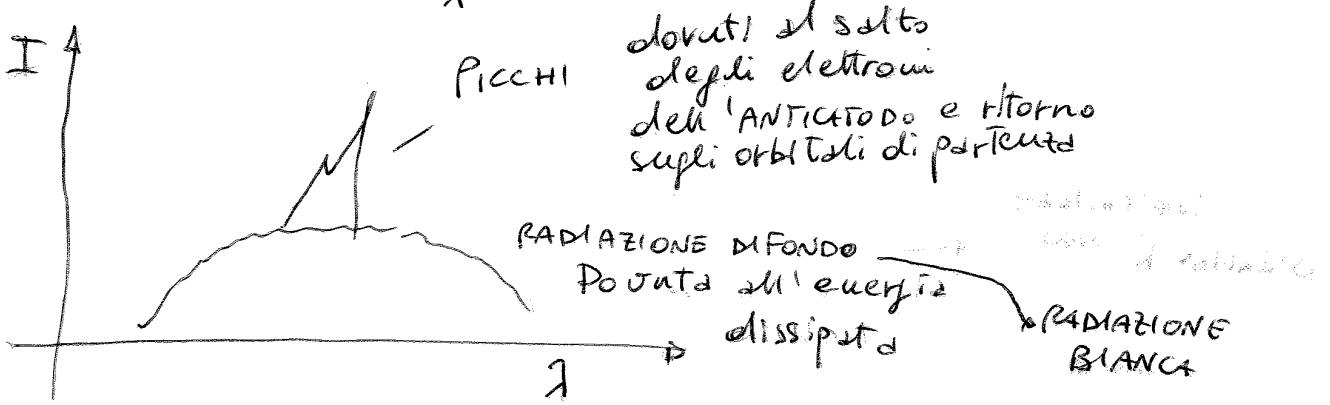 I
PICCHI
dovuti al salto
degli elettroni
dell'ANTICATODO e ritorno
sugli orbitali di partenza
RADIAZIONE DI FONDO
Dovuta all'energia
dissipata
RADIAZIONE
BIANCA
λ